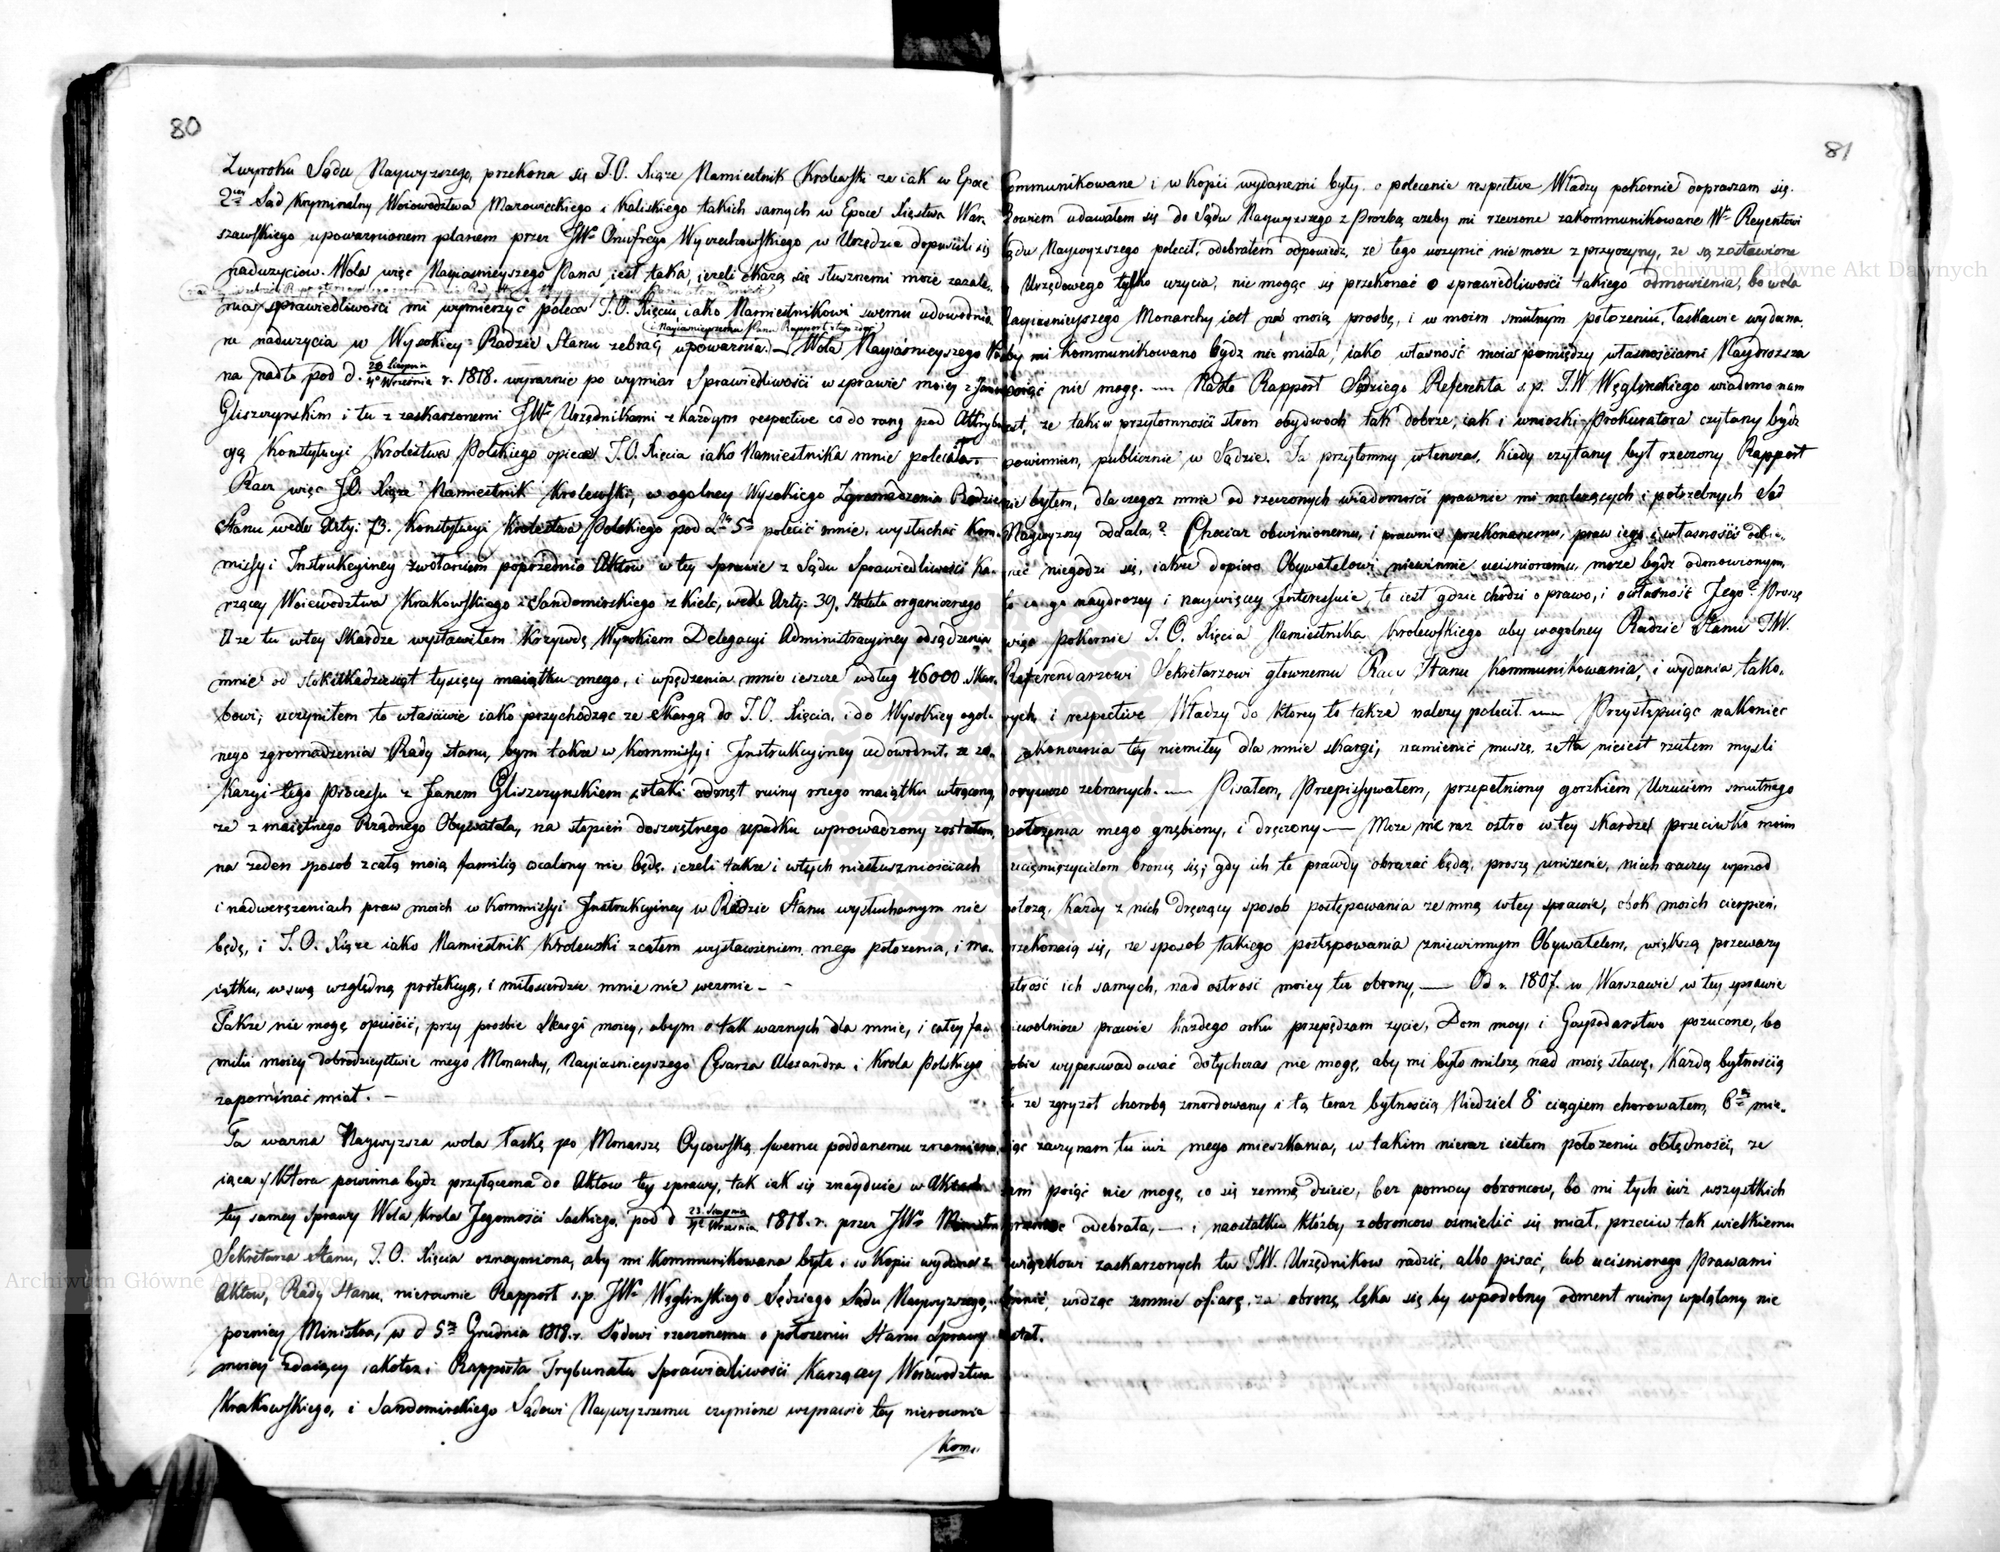 80
Zwyroku Sądu Naywyzszego, przekona się J.O. Xiąże Namiestnik Krolewski ze iak w Epoce
2giey Sąd Kryminalny Woiewodztwa Mazowieckiego i Kaliskiego takich samych w Epoce Xięstwa War-
szawskiego upoważnionem planem przez JWo Onufrego Wyczechowskiego w Urzędzie dopuścił się
naduzyciow. Wola więc Nayiasnieyszego Pana iest taka, iezeli okazą się słusznemi moie zażale-
nia, sprawiedliwości mi wymierzyć poleca J.O. Xięciu, iako Namiestnikowi swemu udowodnio-
i Nayiasnieyszemu Panu Rapport z tego zdać
ne naduzycia w Wysokiey Radzie Stanu zebrać, upoważnia. — Wola Nayiaśnieyszego Pa-
na nadto pod d. 20 Sierpnia / 1go Września r. 1818. wyraznie po wymiar Sprawiedliwości w sprawie moiey z Janem
Gliszczynskim i tu z zaskarżonemi JWo Urzędnikami z kazdym respective co do rang pod Attrybu-
cyą Konstytucyi Krolestwa Polskiego opiece J.O. Xięcia iako Namiestnika mnie poleciła —
Racz więc J.O. Xiąże Namiestnik Krolewski, w ogolney Wysokiego Zgromadzenia Radzie
Stanu wedle Arty: 73. Konstytucyi Krolestwa Polskiego pod 5 polecić mnie, wysłuchać Kom-
missyi Instrukcyiney zwołaniem poprzednio Aktow w tey sprawie z Sądu Sprawiedliwości Ka-
rzącey Woiewodztwa Krakowskiego i Sandomirskiego z Kielc, wedle Arty: 39. Statutu organicznego
A ze tu w tey Skardze wystawiłem krzywdę Wysokiem Delegacyi Administracyiney odsądzenia
mnie od stokilkadziesiąt tysięcy maiątku mego, i wpędzenia mnie ieszcze w dług 46000 Skar-
bowi; uczyniłem to właściwie iako przychodząc ze Skargą do J.O. Xięcia, i do Wysokiey ogol-
nego zgromadzenia Rady Stanu, bym także w Kommissyi Instrukcyiney udowodnił, ze z o-
kazyi tego Processu z Janem Gliszczynskiem w taki odmęt ruiny mego maiątku wtrącony,
ze z maiętnego Rządnego Obywatela, na stopień doszczętnego upadku wprowadzony zostałem,
na żeden sposob z całą moią familią ocalony nie będę, iezeli także i w tych niesłusznościach
i nadwerężeniach praw moich w Kommissyi Instrukcyiney w Radzie Stanu wysłuchanym nie
będę, i J.O. Xiąże iako Namiestnik Krolewski z całem wystawieniem mego położenia, i ma-
iątku, w swą względną protekcyą, i miłosierdzie mnie nie wezmie. —
Także nie mogę opuścić, przy prośbie Skargi moiey, abym o tak ważnych dla mnie, i całey fa-
milii moiey dobrodzieystwie mego Monarchy, Nayiasnieyszego Cesarza Alexandra i Krola Polskiego
zapominać miał. —
Ta ważna Naywyzsza wola łaskę po Monarszę Oycowską swemu poddanemu znamiona-
iąca / Ktora powinna bydz przyłączona do Aktow tey sprawy, tak iak się znayduie w Aktach
tey samey Sprawy Wola Krola Jegomości Saskiego, pod d 1818. r. przez JWo Ministra
Sekretarza Stanu, J.O. Xięcia oznaymiona, aby mi kommunikowana była i w Kopii wydana z
Aktow, Rady Stanu, nierownie Rapport s.p. JWo Węglinskiego Sędziego Sądu Naywyzszego,
poznicy Ministra, w d 5 Grudnia 1818. r. Sądowi rzeczonemu o położeniu Stanu Sprawy
moiey zdaiący iakotez i Rapporta Trybunału Sprawiedliwości Karzącey Woiewodztwa
Krakowskiego, i Sandomirskiego Sądowi Naywyzszemu czynione wsprawie tey nierownie
Kom-
81
kommunikowane i w kopii wydanemi były. o polecenie respective Władzy pokornie dopraszam się.
Bowiem udawałem się do Sądu Naywyzszego z Prozbą azeby mi rzeczone zakommunikowane Wo Reyentowi
Sądu Naywyzszego polecił, odebrałem odpowiedz, ze tego uczynić nie moze z przyczyny, ze są zostawione
Urzędowego tylko uzycia, nie mogąc się przekonać o sprawiedliwości takiego odmowienia, bo wola
Nayiasnieyszego Monarchy iest na moią prosbę, i w moim smutnym położeniu, łaskawie wydana.
by mi kommunikowano bydz nie miała, iako własność moia pomiędzy własnościami Naydrozsza
poiąć nie mogę. — Nadto Rapport Sędziego Referenta s.p. JW Węglinskiego wiadomo nam
iest, ze takiw przytomności stron obydwoch tak dobrze, iak i wnioski Prokuratora czytany bydz
powinnien, publicznie w Sądzie. Ja przytomny wtenczas, kiedy czytany był rzeczony Rapport
nie byłem, dla czegoz mnie od rzeczonych wiadomości prawnie mi należących i potrzebnych Sąd
Naywyzszy oddala? Chociaz obwinionemu, i prawnie przekonanemu, praw iego i własności odbie-
rać niegodzi się, iakze dopiero Obywatelowi niewinnie uciśnionemu, moze bydz odmowionym,
to co go naydrozey i naywięcey Interessuie, to iest gdzie chodzi o prawo, i o własność Jego? Proszę
więc pokornie J.O. Xięcia Namiestnika Krolewskiego aby wogolney Radzie Stanu JW.
Referendarzowi Sekretarzowi głownemu Rady Stanu kommunikowania, i wydania tako-
wych, i respective Władzy do ktorey to także nalezy polecił. — Przystępuiąc nakoniec
zkonczenia tey niemiłey dla mnie skargi, namienić muszę, ze ta nieiest rzutem mysli
porywczo zebranych. — Pisałem, Przepisywałem, przepełniony gorzkiem Uczuciem smutnego
położenia mego gnębiony, i dręczony — Moze nie raz ostro w tey skardze przeciwko moim
uciemięzycielom bronię się; gdy ich te prawdy obrazać będą, proszę uniżenie, niech raczey wprzod
położą, kazdy z nich dręczący sposob postępowania ze mną w tey sprawie, obok moich cierpień,
przekonaią się, ze sposob takiego postępowania zniewinnym Obywatelem, większą przeważy
ostrość ich samych, nad ostrość moiey tu obrony, — Od r. 1807. w Warszawie w tey sprawie
niewolnicze prawie kazdego roku przepędzam zycie, Dom moy, i Gospodarstwo porzucone, bo
sobie wyperswadować dotychczas nie mogę, aby mi było milszę nad moię sławę, Kazdą bytnością
tu ze zgryzot chorobą zmordowany i tą teraz bytnością Niedziel 8 ciągiem chorowałem, 6 mie-
siąc zaczynam tu iuz mego mieszkania, w takim nieraz iestem położeniu obłędności, ze
sam poiąć nie mogę, co się zemną dzieie, bez pomocy obroncow, bo mi tych iuz wszystkich
odebrała, — i naostatku któżby z obroncow ośmielić się miał, przeciw tak wielkiemu
związkowi zaskarzonych tu JW. Urzędnikow radzić, albo pisać, lub uciśnionego Prawami
bronić, widząc zemnie ofiarę, za obronę lęka się by wpodobny odment ruiny wplątany nie
został.